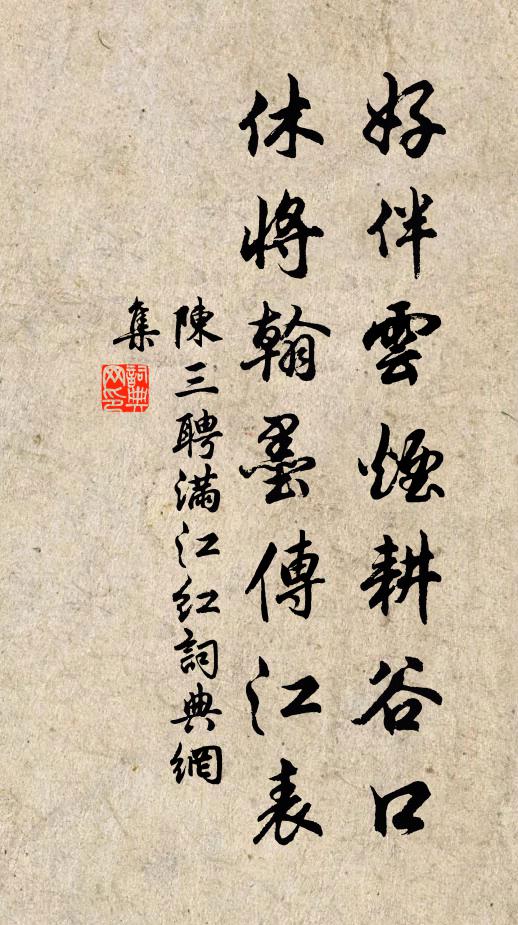 好伴雲煙耕谷口
休將翰墨傳江表
陳三聘滿江紅詞典網
集
詞典
网印